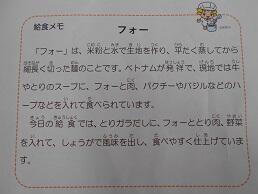 給食メモ
フォー
「フォー」は、米粉と水で生地を作り、平たく蒸してから
細長く切った麺のことです。ベトナムが発祥で、現地では牛
やとりのスープに、フォーと肉、パクチーやバジルなどのハ
ーブなどを入れて食べられています。
今日の給食では、とりガラだしに、フォーととり肉、野菜
を入れて、しょうがで風味を出し、食べやすく仕上げていま
す。